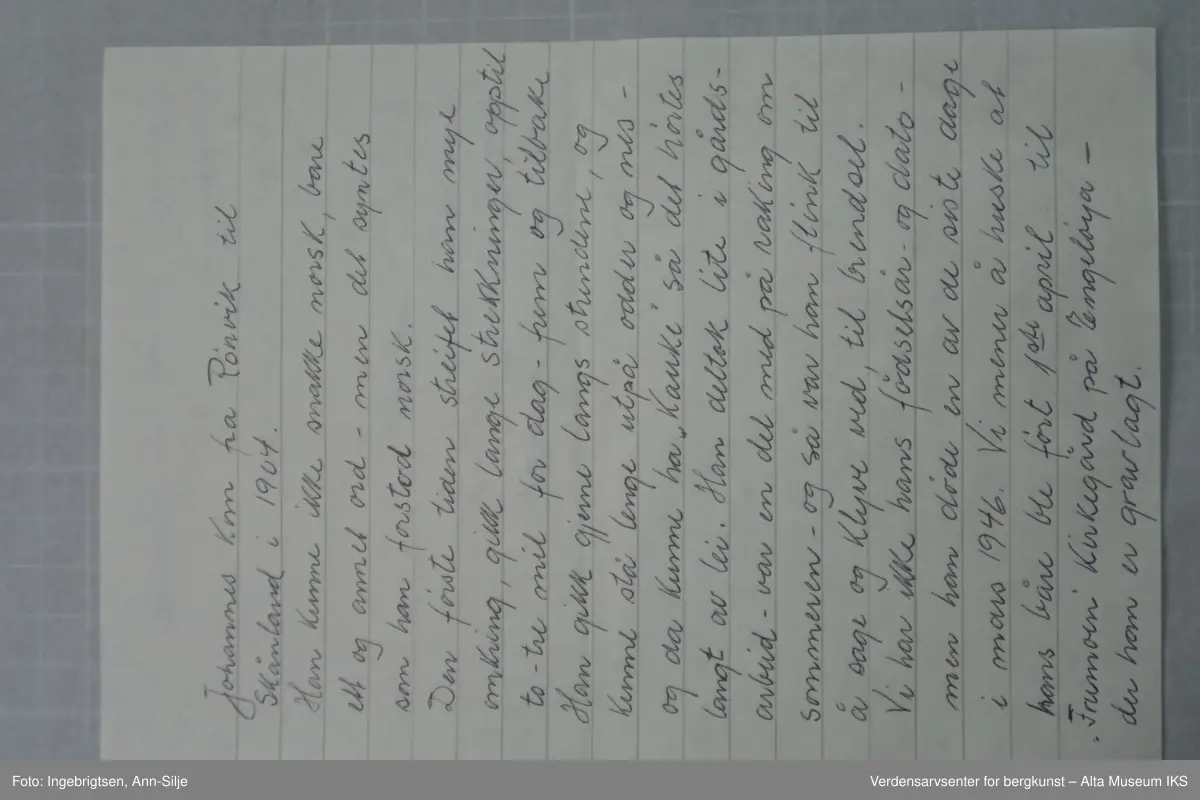 Johannes Kom fra Rönvik til
Skånland i 1904.
Han kunne ikke snakke norsk, bare
ett og annet ord - men det syntes
som han forstod norsk.
Den förste tiden streifet han mye
omkring, gikk lange strekkninger, opptil
to-tre mil for dag - frem og tilbake
Han gikk gjerne langs strendene, og
kunne stå lenge utpå odder og nes -
og da kunne ha „Kauke" så det hörtes
langt av lei. Han deltok lite i gårds-
arbeid - var en del med på raking om
sommeren - og så var han flink til
å sage og klyve ved, til brendsel.
Vi har ikke hans födselsår - og dato -
men han döde en av de siste dage
i mars 1946. Vi mener å huske at
hans båre ble fört 1ste april til
kirkegård på Engelöya -
der han er gravlagt.
Foto: Ingebrigtsen, Ann-Silje
Verdensarvsenter for bergkunst – Alta Museum IKS